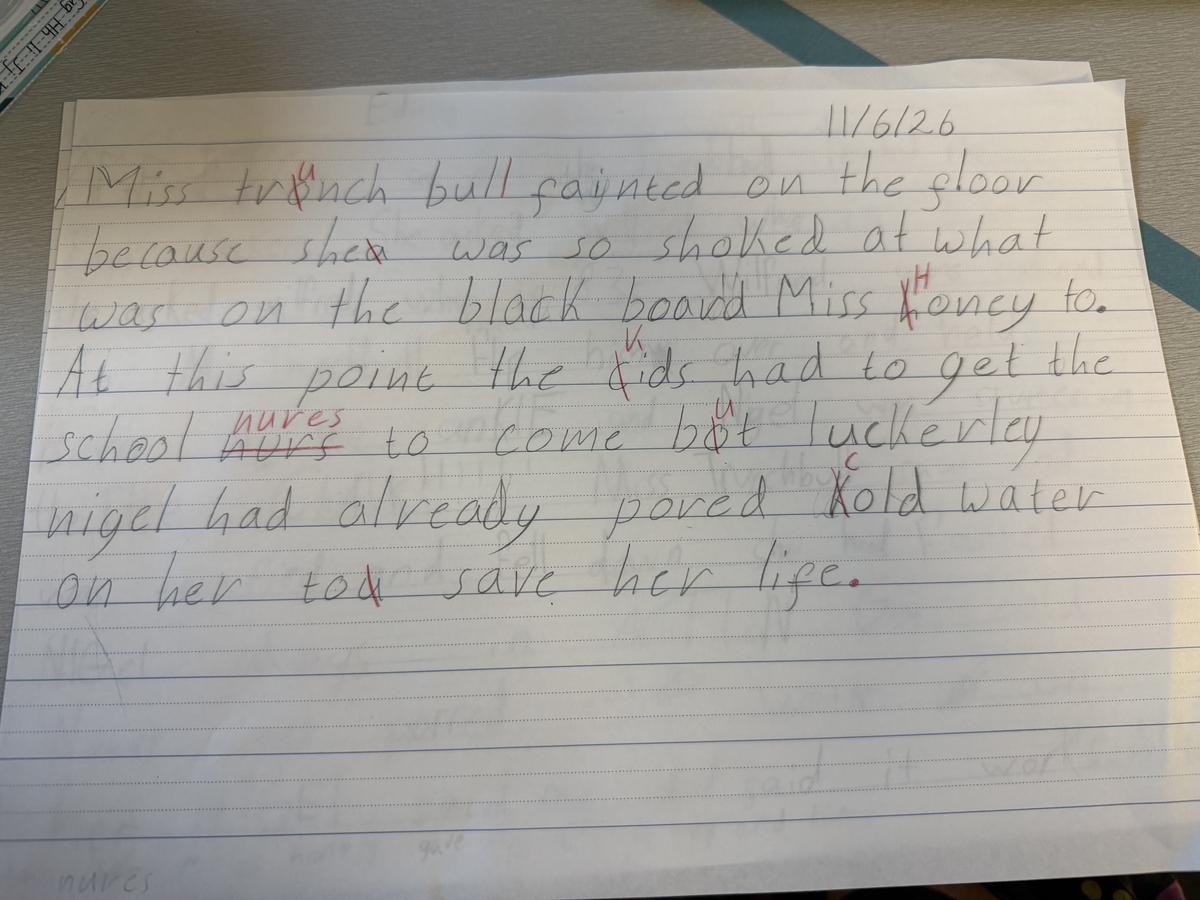 11/6/26
Miss trunch bull faynted on the floor
because she was so shoked at what
was on the black board Miss Honey to.
At this point the Kids had to get the
school nures to come but luckerley
nigel had already pored cold water
on her to save her life.
nures